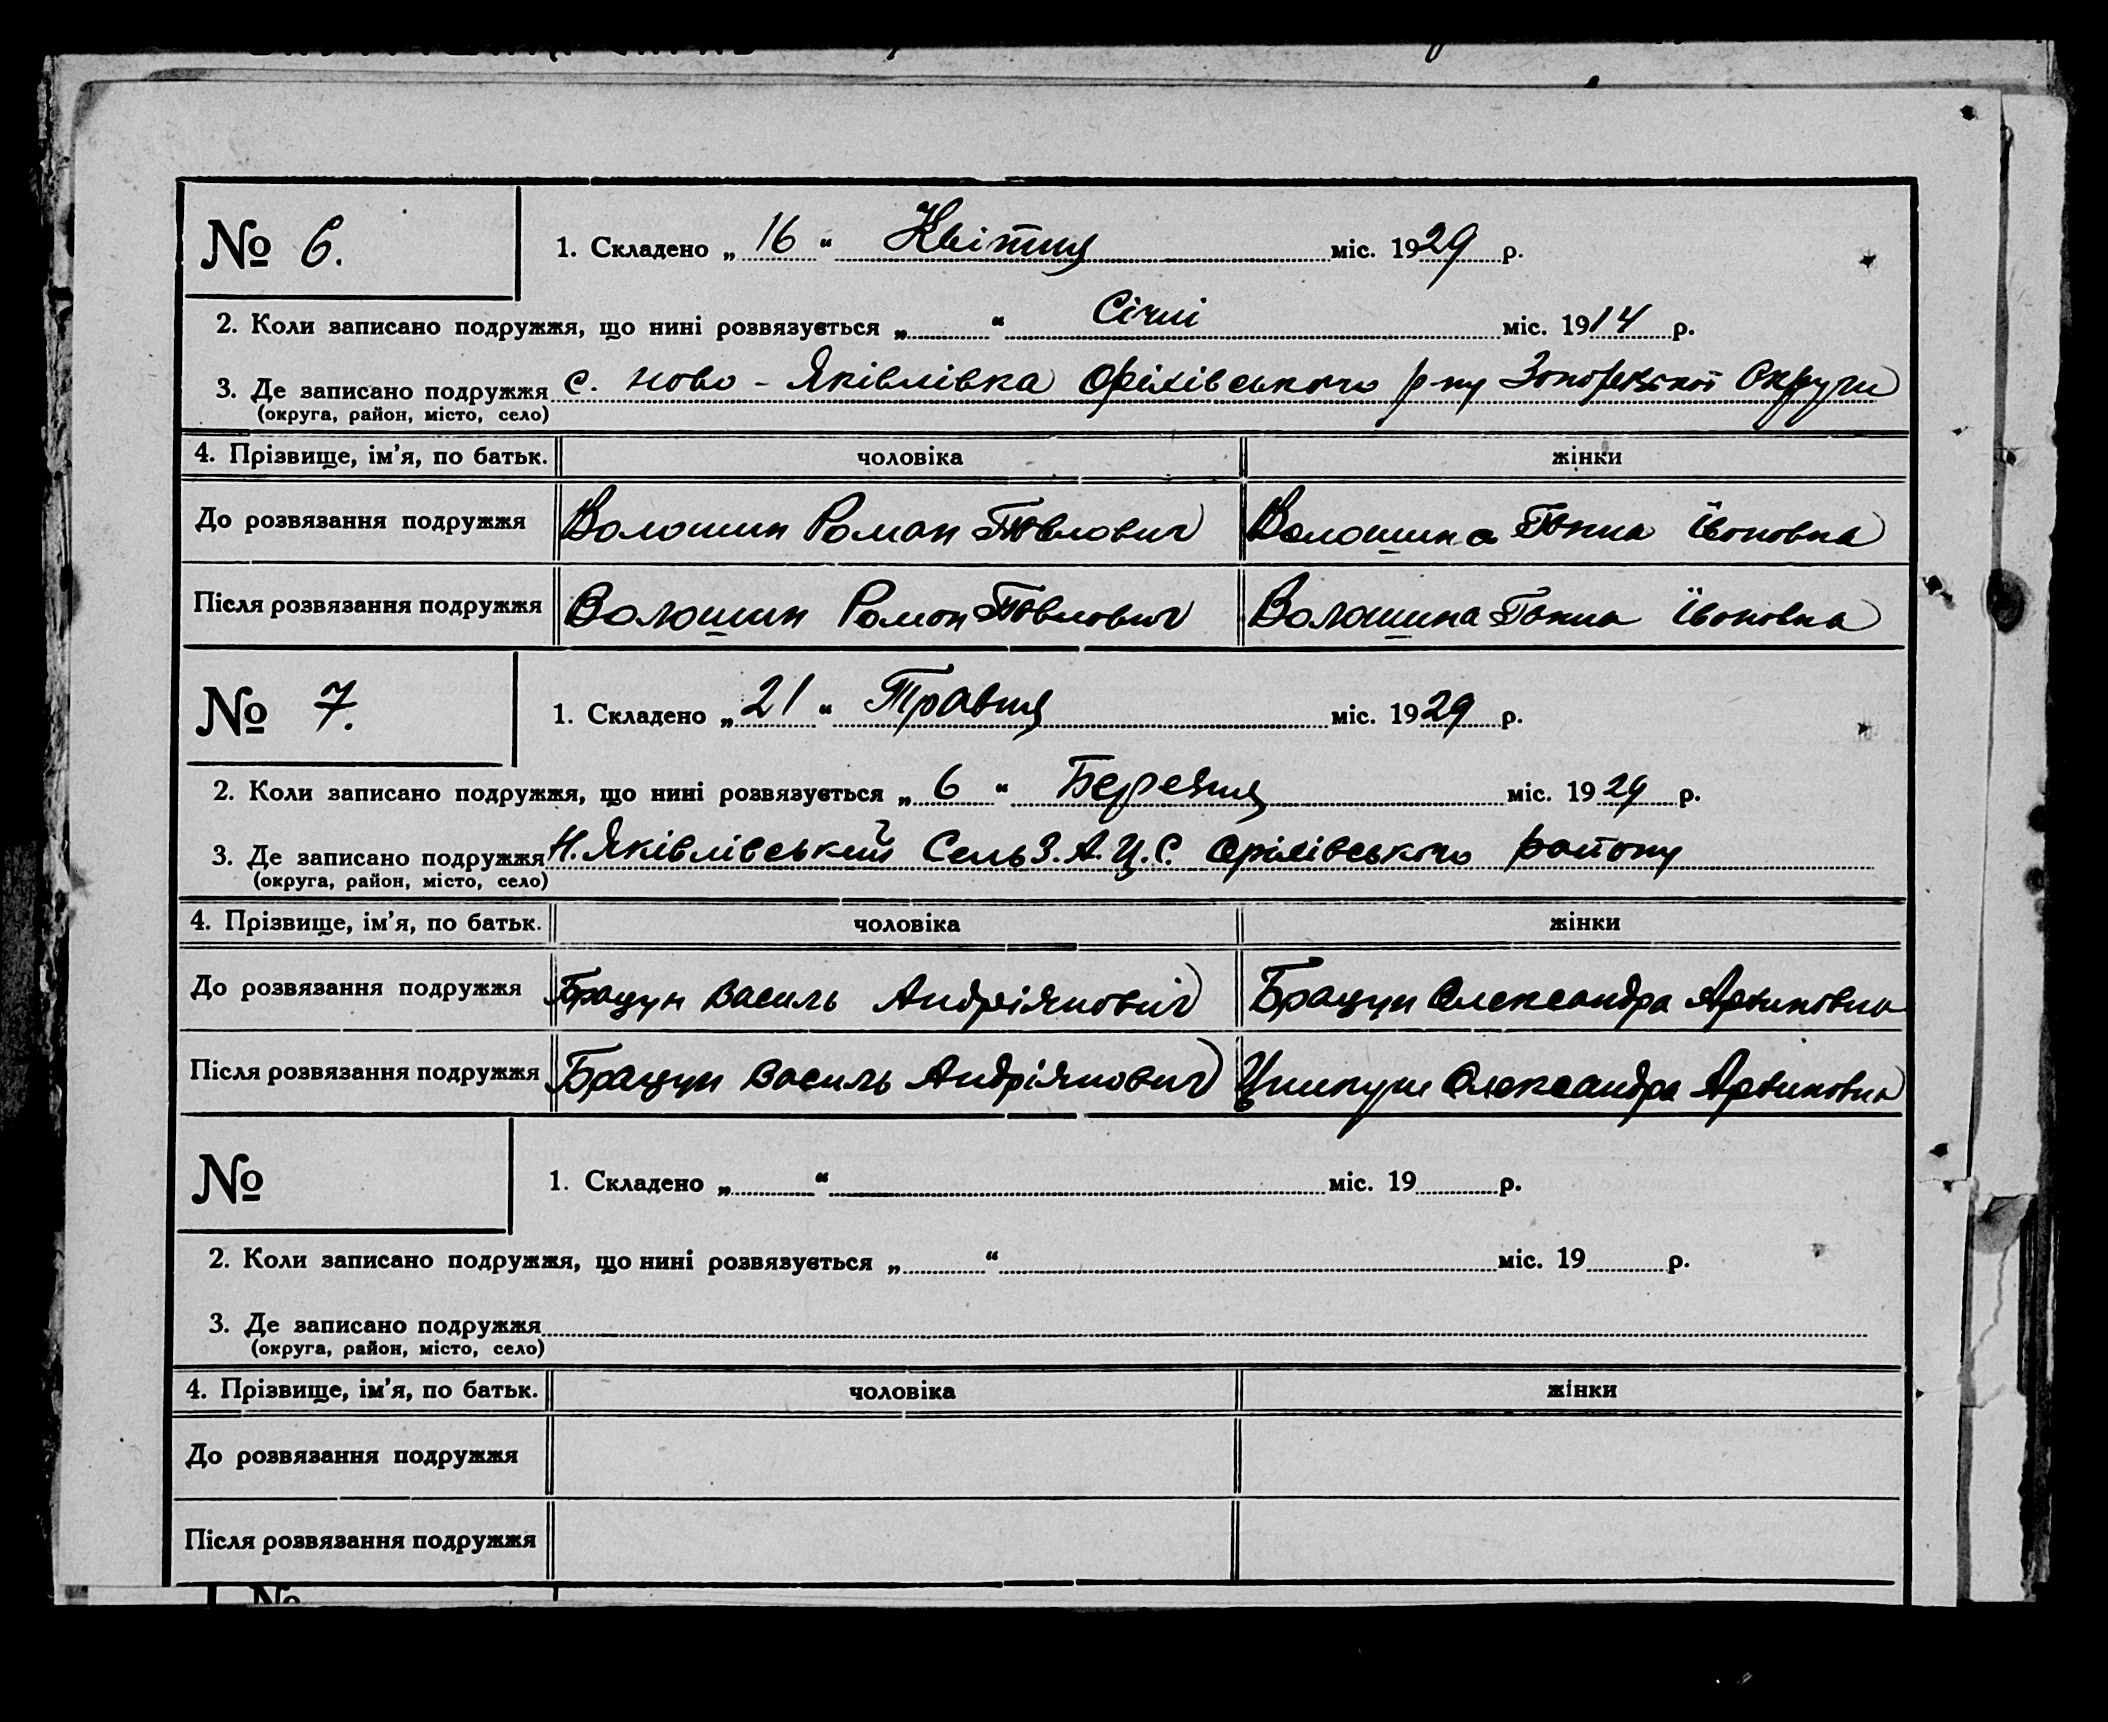 № 6. 1. Складено „ 16 “ Квітня міс. 1929 р.
2. Коли записано подружжя, що нині розвязується „ “ Січні міс. 1914 р.
3. Де записано подружжя с. Ново-Яківлівка Оріхівського р-ну Запорізької Округи
(округа, район, місто, село)
4. Прізвище, ім’я, по батьк. чоловіка жінки
До розвязання подружжя Волошин Роман Павлович Волошина Ганна Івановна
Після розвязання подружжя Волошин Роман Павлович Волошина Ганна Івановна
№ 7. 1. Складено „ 21 “ Травня міс. 1929 р.
2. Коли записано подружжя, що нині розвязується „ 6 “ Березня міс. 1929 р.
3. Де записано подружжя Н. Яківлівський Сель З.А.Ц.С. Оріхівського району
(округа, район, місто, село)
4. Прізвище, ім’я, по батьк. чоловіка жінки
До розвязання подружжя Брацун Василь Андріянович Брацун Олександра
Після розвязання подружжя Брацун Василь Андріянович Олександра
№ 1. Складено „ “ міс. 19 р.
2. Коли записано подружжя, що нині розвязується „ “ міс. 19 р.
3. Де записано подружжя
(округа, район, місто, село)
4. Прізвище, ім’я, по батьк. чоловіка жінки
До розвязання подружжя
Після розвязання подружжя
№